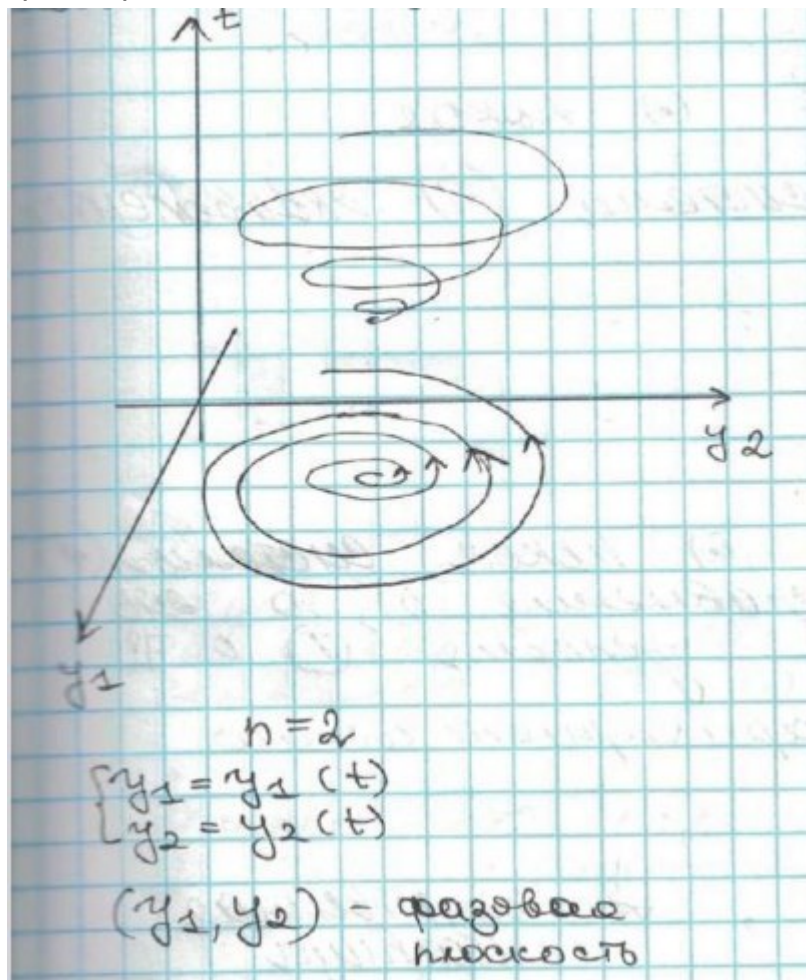 t
y2
y1
n = 2
{ y1 = y1 (t)
y2 = y2 (t)
(y1, y2) - фазовая
плоскость